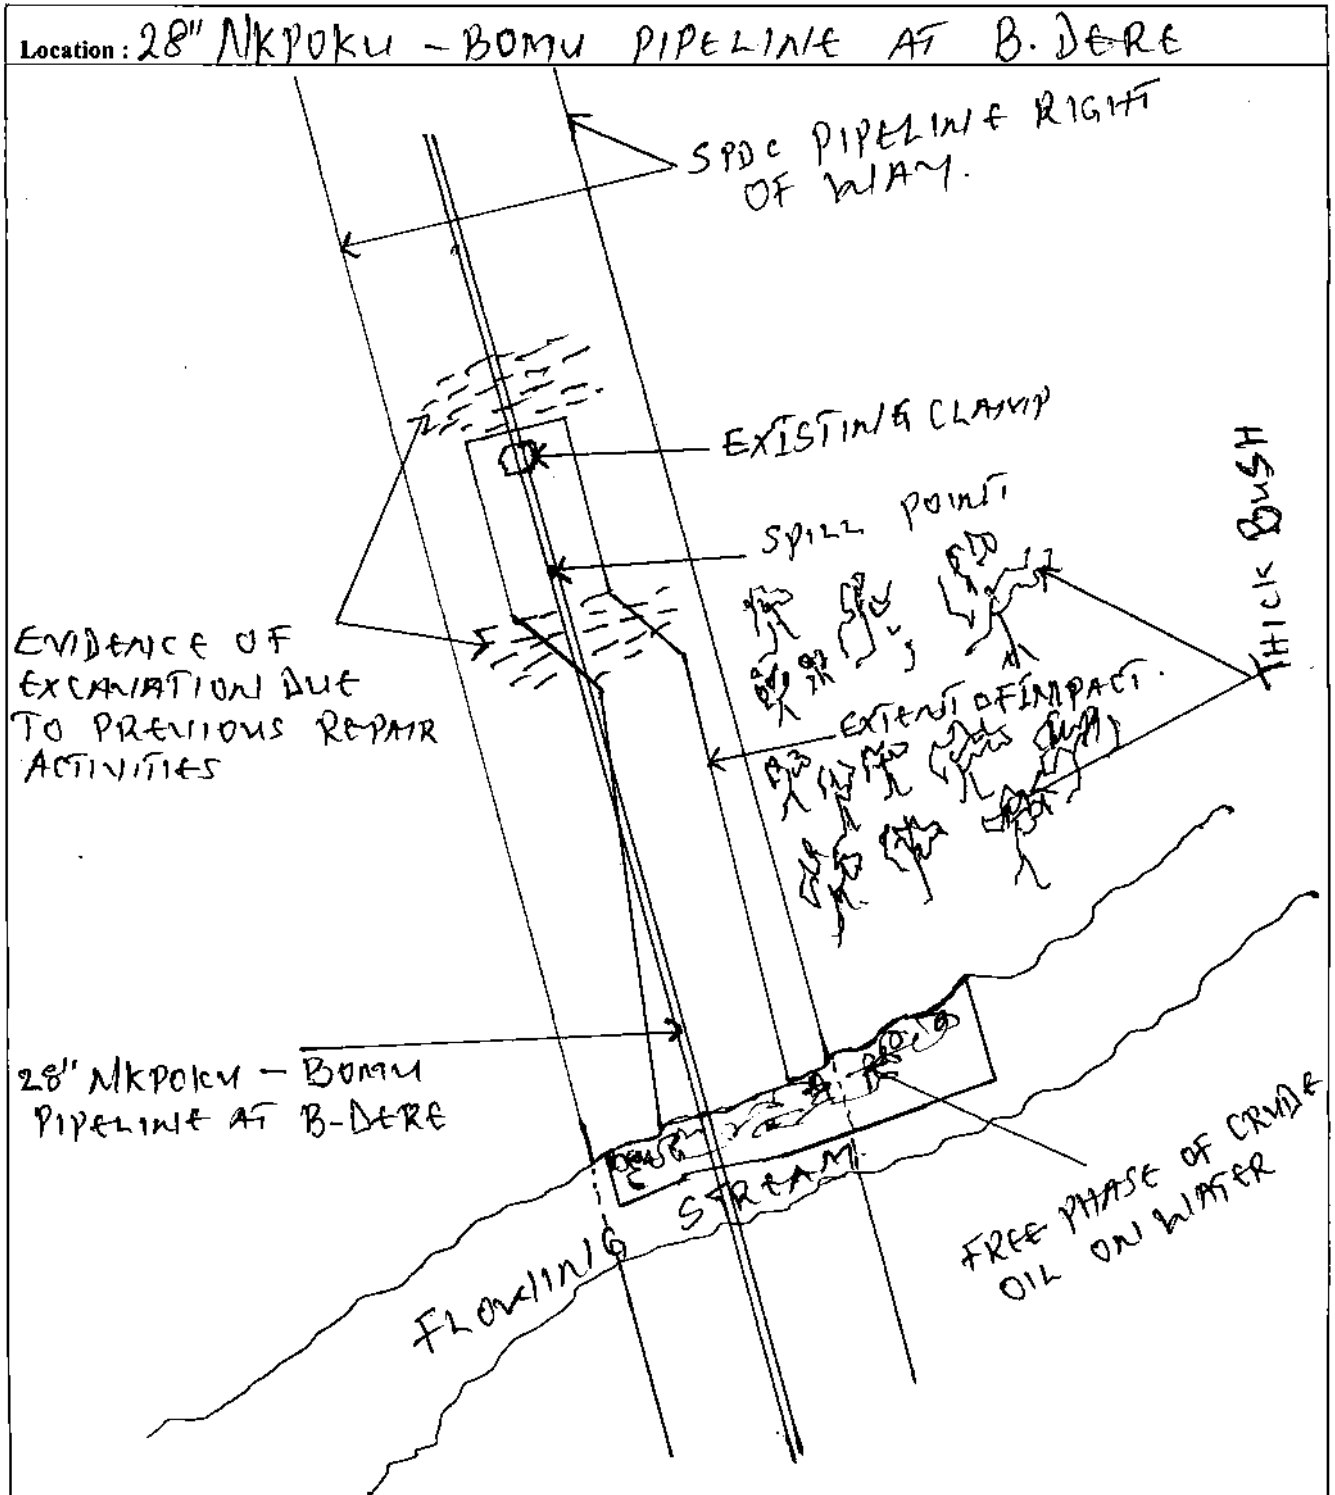 Location : 28" NKPOKU - BOMU PIPELINE AT B. DERE
SPDC PIPELINE RIGHT
OF WAY.
EXISTING CLAMP
SPILL POINT
THICK BUSH
EVIDENCE OF
EXCAVATION DUE
TO PREVIOUS REPAIR
ACTIVITIES
EXTENT OF IMPACT.
28" NKPOKU - BOMU
PIPELINE AT B-DERE
FLOWING STREAM
FREE PHASE OF CRUDE
OIL ON WATER